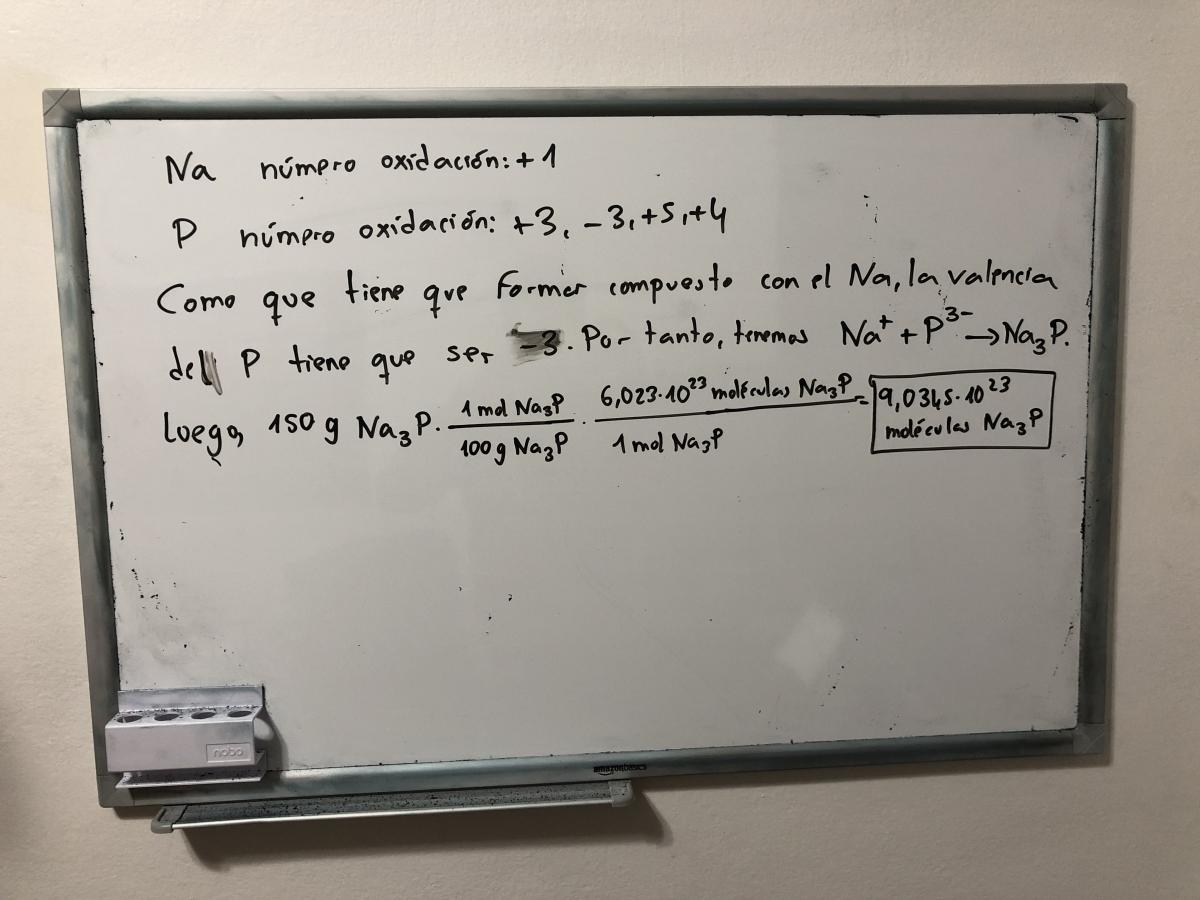 Na número oxidación: +1
P número oxidación: +3, -3, +5, +4
Como que tiene que formar compuesto con el Na, la valencia
del P tiene que ser -3. Por tanto, tenemos Na⁺ + P³⁻ → Na₃P.
Luego, 150 g Na₃P · 1 mol Na₃P / 100 g Na₃P · 6,023·10²³ moléculas Na₃P / 1 mol Na₃P = 9,0345·10²³ moléculas Na₃P
nobo
amazonbasics